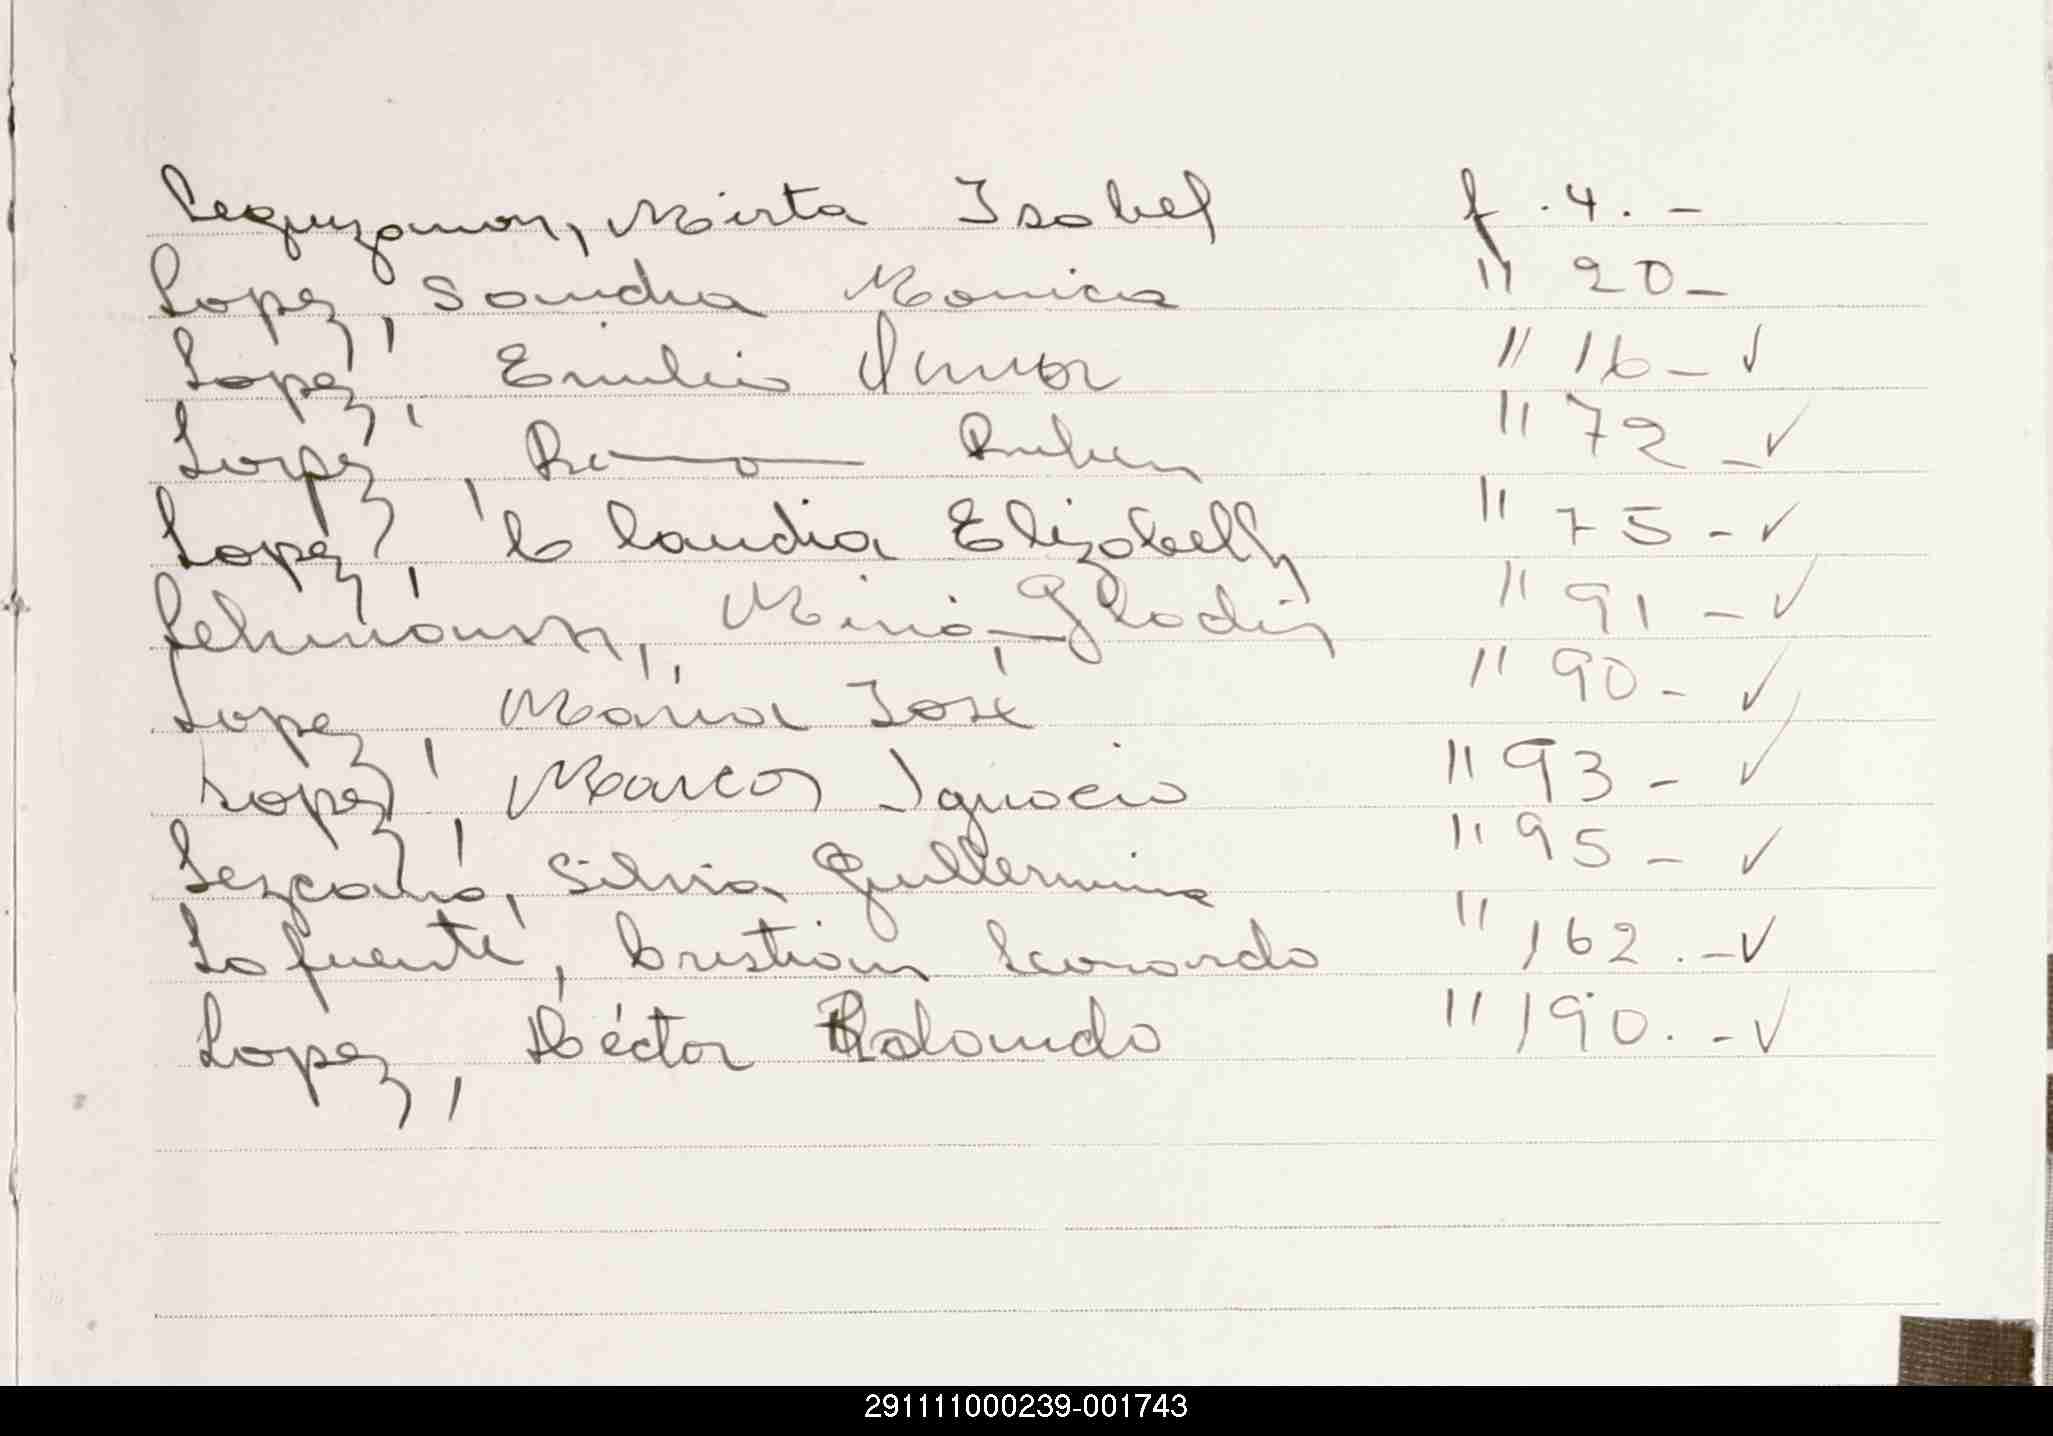 Leguizamon, Mirta Isabel f. 4. -
Lopez, Sandra Monica " 20 -
Lopez, Emilio Omar " 16 - ✓
Lopez, Ramon Ruben " 72 - ✓
Lopez, Claudia Elizabeth " 75 - ✓
Lehmann, Miriam Gladis " 91 - ✓
Lopez, María José " 90 - ✓
Lopez, Marcos Ignacio " 93 - ✓
Lezcano, Silvia Guillermina " 95 - ✓
Lafuente, Cristian Leonardo " 162. - ✓
Lopez, Héctor Rolando " 190. - ✓
291111000239-001743